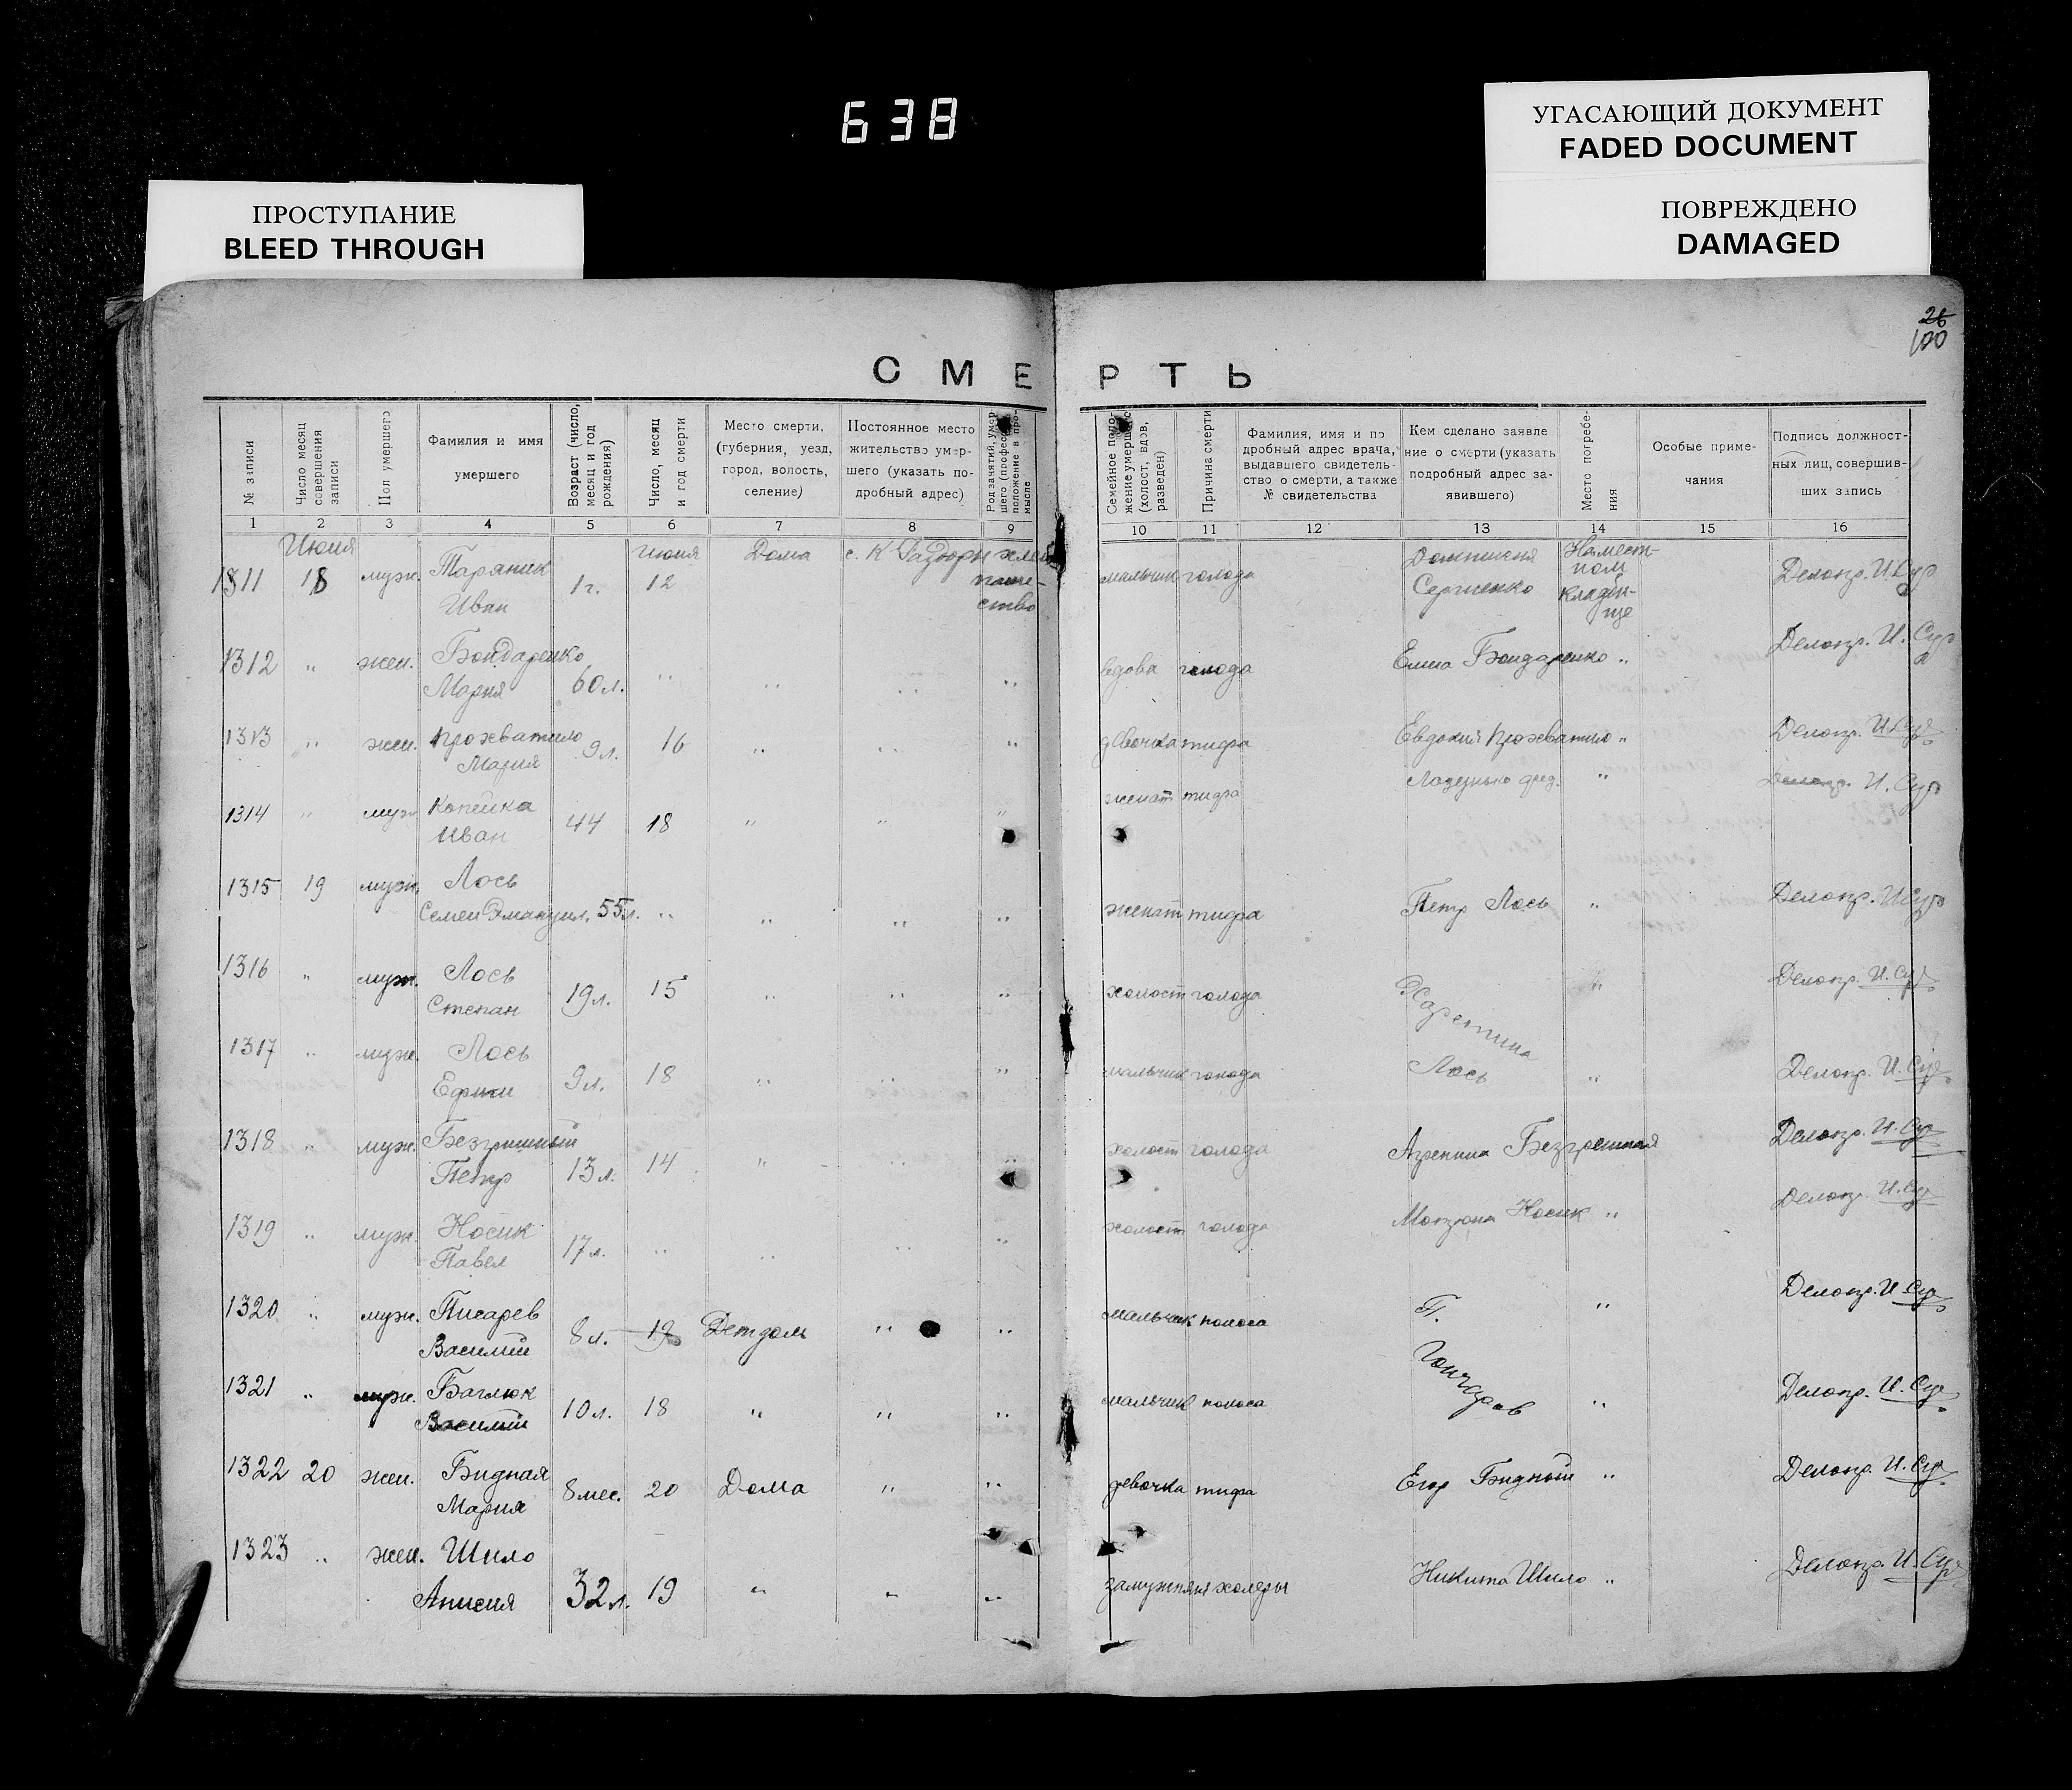 638
УГАСАЮЩИЙ ДОКУМЕНТ
FADED DOCUMENT
ПОВРЕЖДЕНО
DAMAGED
ПРОСТУПАНИЕ
BLEED THROUGH
26
100
СМЕРТЬ
№ записи
Число месяц совершения записи
Пол умершего
Фамилия и имя умершего
Возраст (число, месяц и год рождения)
Число, месяц и год смерти
Место смерти, (губерния, уезд, город, волость, селение)
Постоянное место жительство умершего (указать подробный адрес)
Род занятий, умершего (профес. положение в промысле
Семейное положение умершего (холост, вдов, разведен)
Причина смерти
Фамилия, имя и подробный адрес врача, выдавшего свидетельство о смерти, а также № свидетельства
Кем сделано заявление о смерти (указать подробный адрес заявившего)
Место погребения
Особые примечания
Подпись должностных лиц, совершивших запись
1 2 3 4 5 6 7 8 9 10 11 12 13 14 15 16
Июня июня
1311 18 муж. Тараник Иван 1 г. 12 Дома с. К Раздоры хлебопашество мальчик голода Сергиенко На местном кладбище Делопр. И. Сур
1312 " жен. Бондаренко Мария 60 л. " " " " вдова голода Елена Бондаренко " Делопр. И. Сур
1313 " жен. Прохватило Мария 9 л. 16 " " " девочка тифа Евдокия Прохватило " Делопр. И. Сур
1314 " муж Копейка Иван 44 18 " " " женат тифа " Делопр. И. Сур
1315 19 муж. Лось Семен Эмануил. 55 л. " " " " женат тифа Петр Лось " Делопр. И. Сур
1316 " муж. Лось Степан 19 л. 15 " " " холост голода Харитина " Делопр. И. Сур
1317 " муж. Лось Ефим 9 л. 18 " " " мальчик голода Лось " Делопр. И. Сур
1318 " муж. Безгришный Петр 13 л. 14 " " " холост голода Агрепина Безгрешная Делопр. И. Сур
1319 " муж. Носик Павел 17 л. " " " " холост голода Носик " Делопр. И. Сур
1320 " муж. Писарев Василий 8 л. 19 Детдом " " мальчик поноса П. " Делопр. И. Сур
1321 " муж. Баглюк Василий 10 л. 18 " " " мальчик поноса Гончаров " Делопр. И. Сур
1322 20 жен. Бидная Мария 8 мес. 20 Дома " " девочка тифа Егор Бидный " Делопр. И. Сур
1323 " жен. Шило Анисия 32 л. 19 " " " замужняя холеры Никита Шило " Делопр. И. Сур